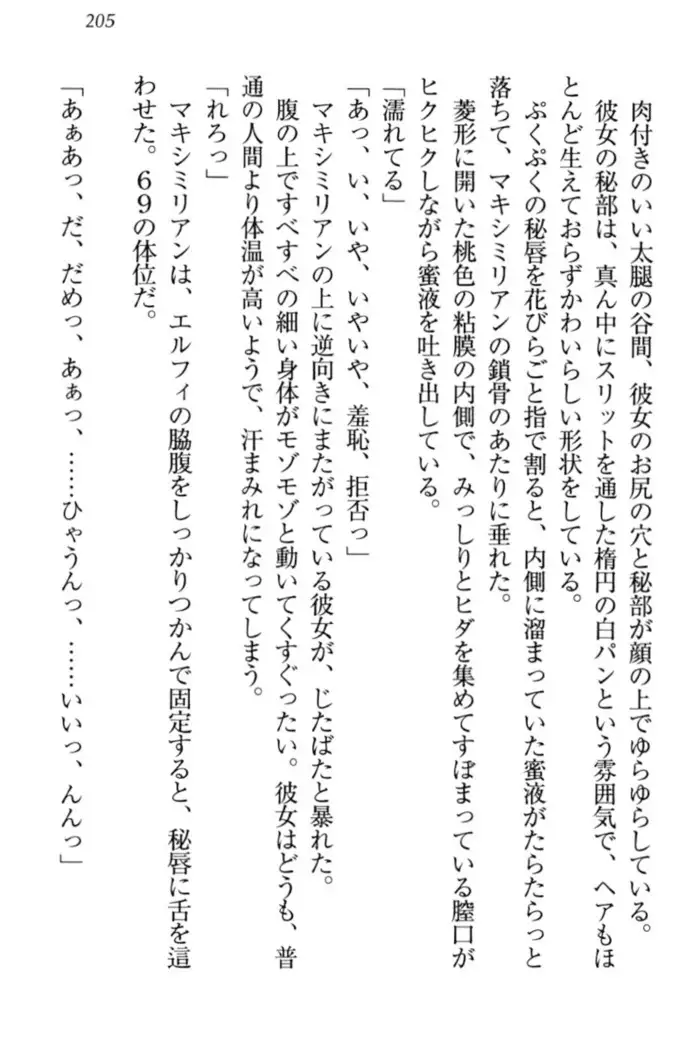 205
肉付きのいい太腿の谷間、彼女のお尻の穴と秘部が顔の上でゆらゆらしている。
彼女の秘部は、真ん中にスリットを通した楕円の白パンという雰囲気で、ヘアもほ
とんど生えておらずかわいらしい形状をしている。
ぷくぷくの秘唇を花びらごと指で割ると、内側に溜まっていた蜜液がたらたらっと
落ちて、マキシミリアンの鎖骨のあたりに垂れた。
菱形に開いた桃色の粘膜の内側で、みっしりとヒダを集めてすぼまっている膣口が
ヒクヒクしながら蜜液を吐き出している。
「濡れてる」
「あっ、い、いや、いやいや、羞恥、拒否っ」
マキシミリアンの上に逆向きにまたがっている彼女が、じたばたと暴れた。
腹の上ですべすべの細い身体がモゾモゾと動いてくすぐったい。彼女はどうも、普
通の人間より体温が高いようで、汗まみれになってしまう。
「れろっ」
マキシミリアンは、エルフィの脇腹をしっかりつかんで固定すると、秘唇に舌を這
わせた。69の体位だ。
「あぁあっ、だ、だめっ、あぁっ、……ひゃうんっ、……いいっ、んんっ」